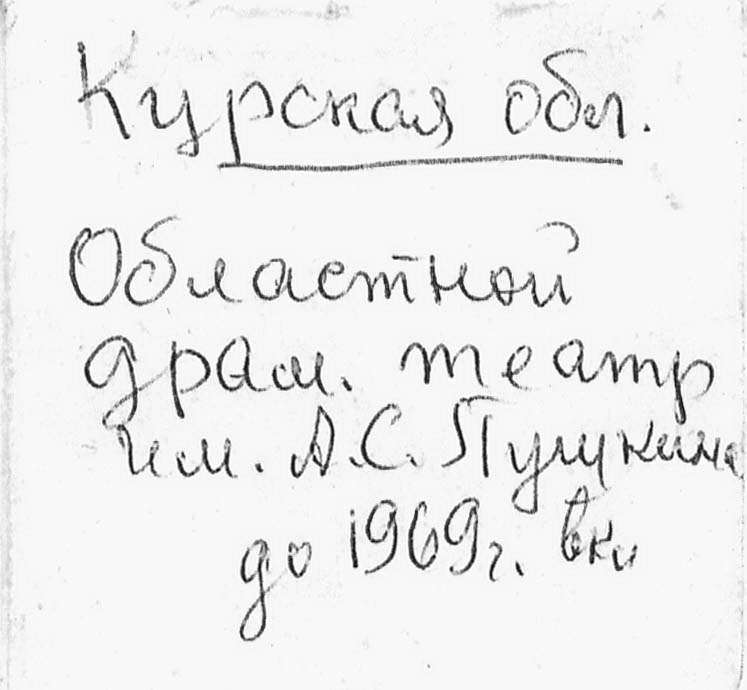 Курская обл.
Областной
драм. театр
им. А.С. Пушкина
до 1969г. вкл